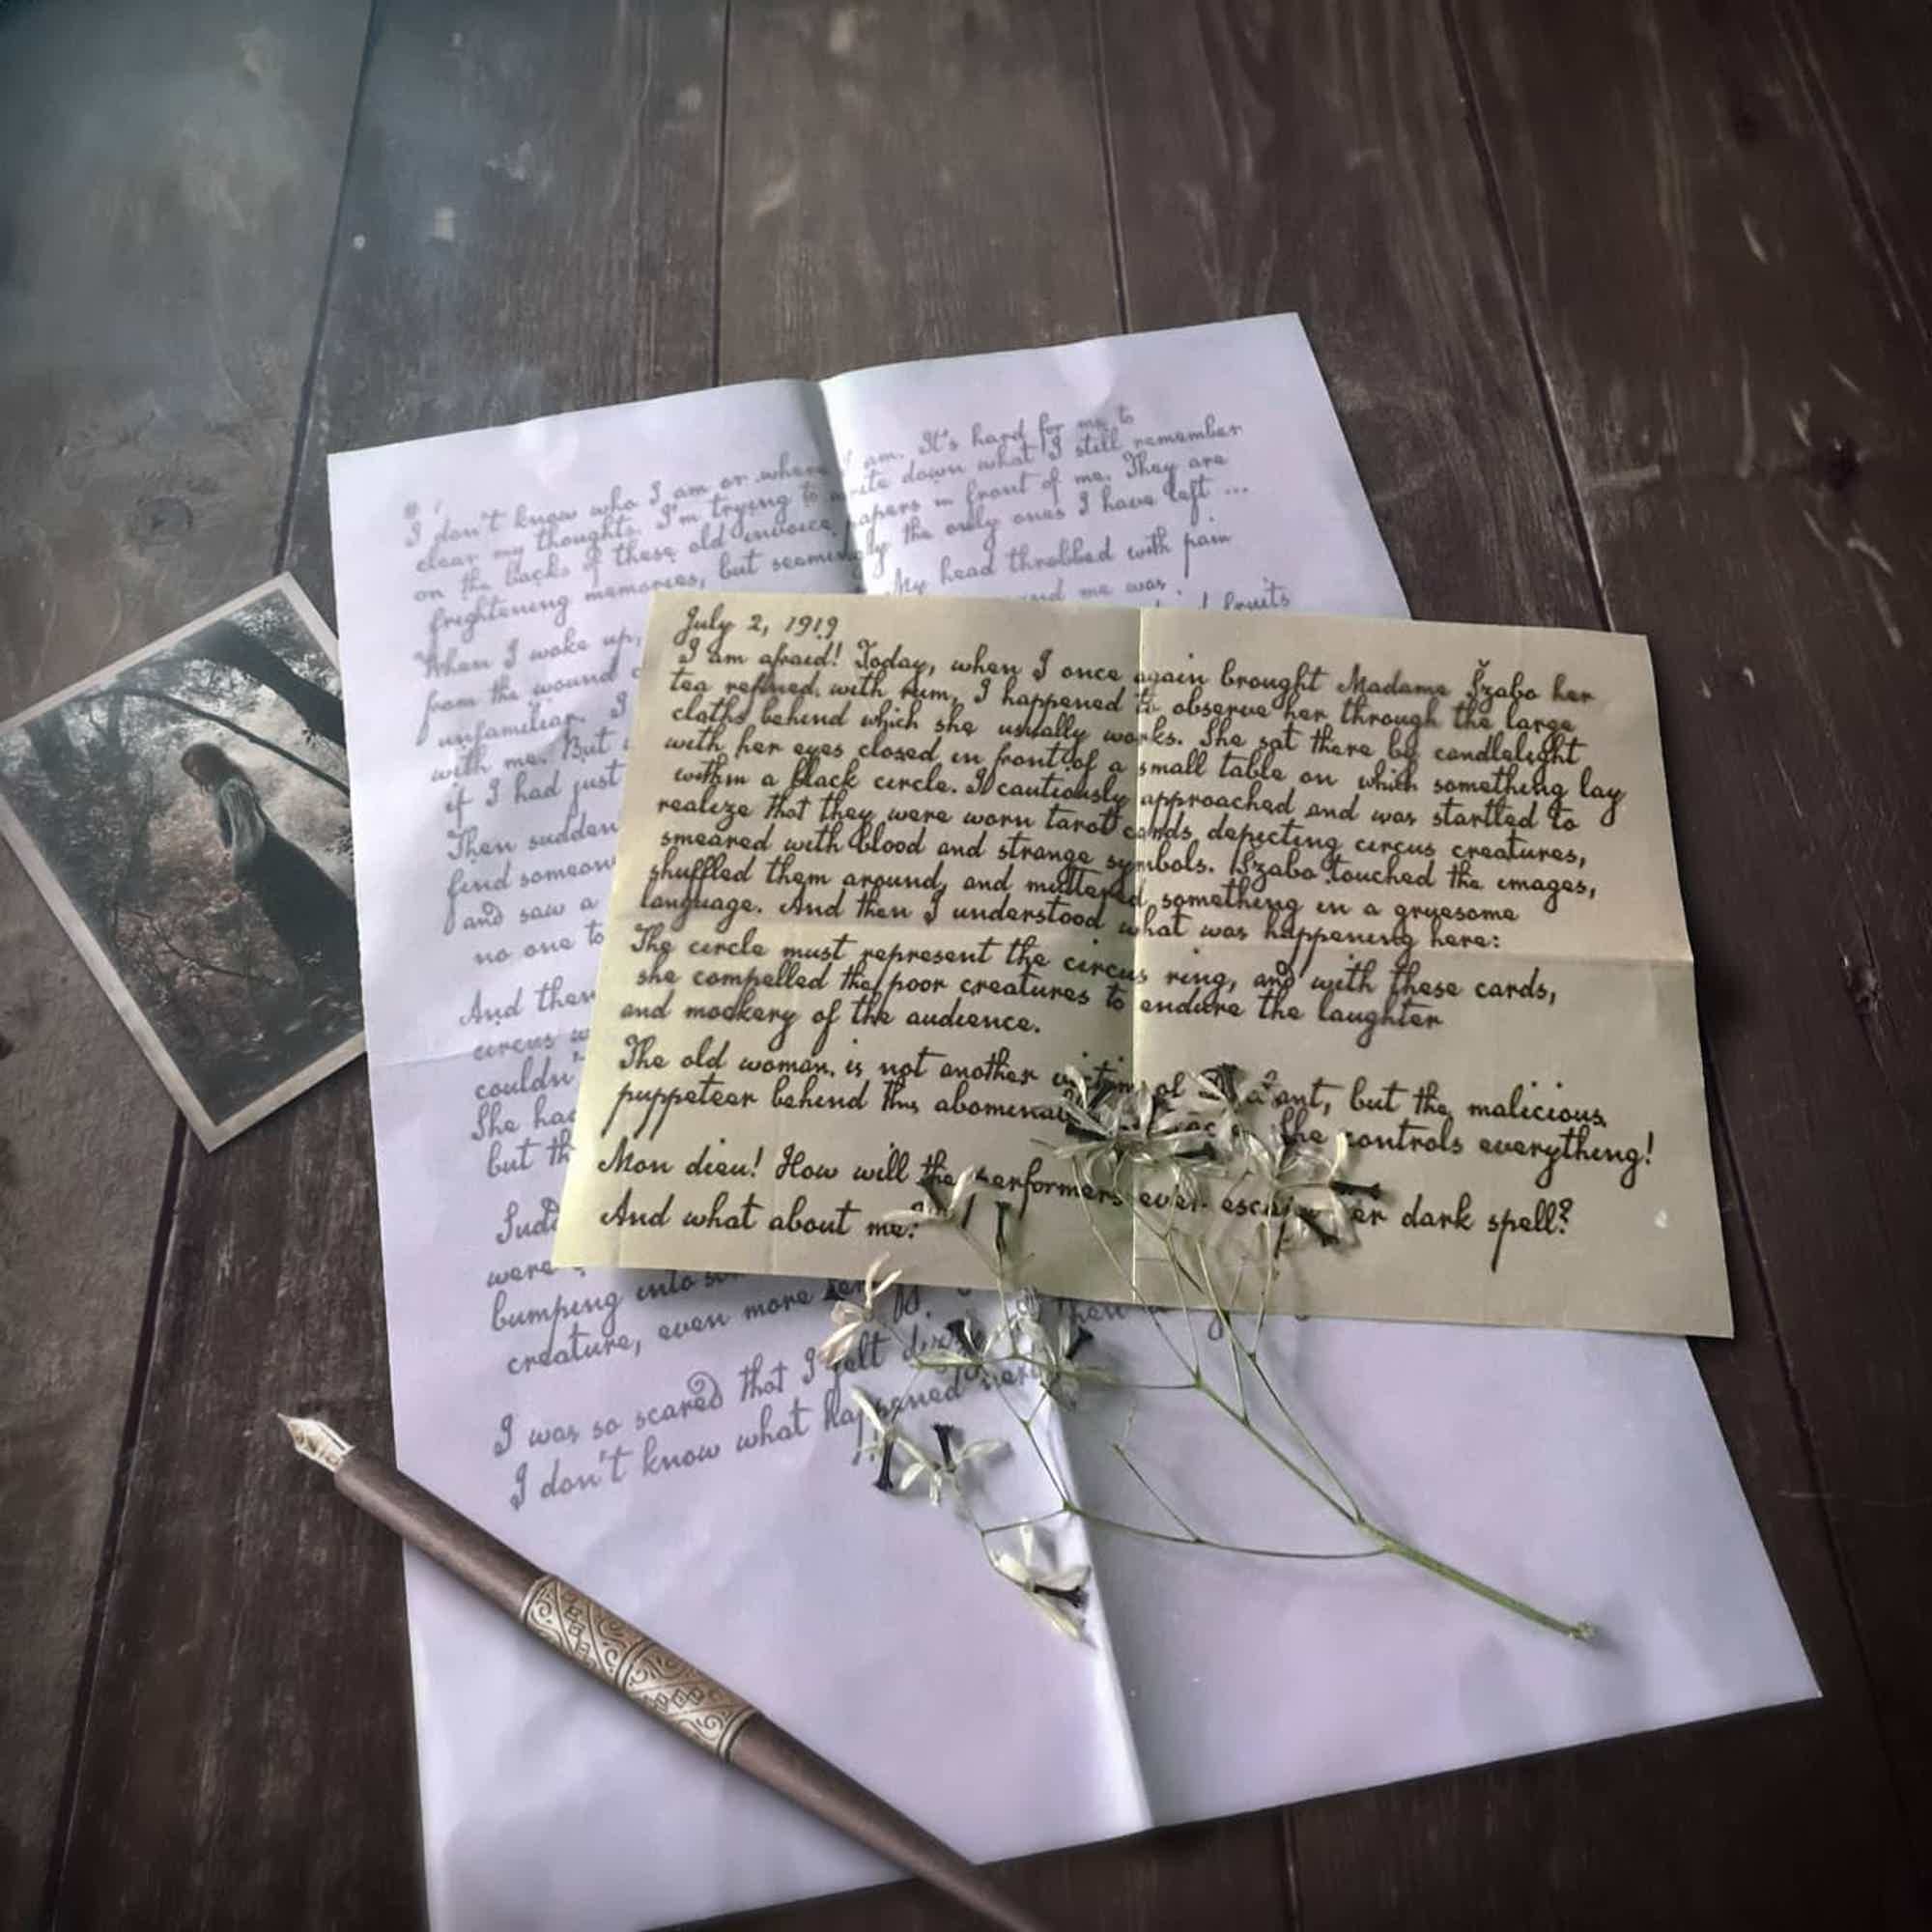 I don't know who I am or where I am. It's hard for me to
clear my thoughts. I'm trying to write down what I still remember
on the backs of these old invoice papers in front of me. They are
frightening memories, but seemingly the only ones I have left ...
When I woke up, My head throbbed with pain
from the wound and me was
unfamiliar. I fruits
with me. But
if I had just
Then sudden
find someone
and saw a
no one to
And then
circus
couldn'
She had
but th
Sudd
were
bumping into
creature, even more
I was so scared that I felt
I don't know what happened next
July 2, 1919
I am afraid! Today, when I once again brought Madame Szabo her
tea refined with rum, I happened to observe her through the large
cloths behind which she usually works. She sat there by candlelight
with her eyes closed in front of a small table on which something lay
within a black circle. I cautiously approached and was startled to
realize that they were worn tarot cards depicting circus creatures,
smeared with blood and strange symbols. Szabo touched the images,
shuffled them around, and muttered something in a gruesome
language. And then I understood what was happening here:
The circle must represent the circus ring, and with these cards,
she compelled the poor creatures to endure the laughter
and mockery of the audience.
The old woman is not another victim of ant, but the malicious
puppeteer behind this She controls everything!
Mon dieu! How will the performers ever escape her dark spell?
And what about me?